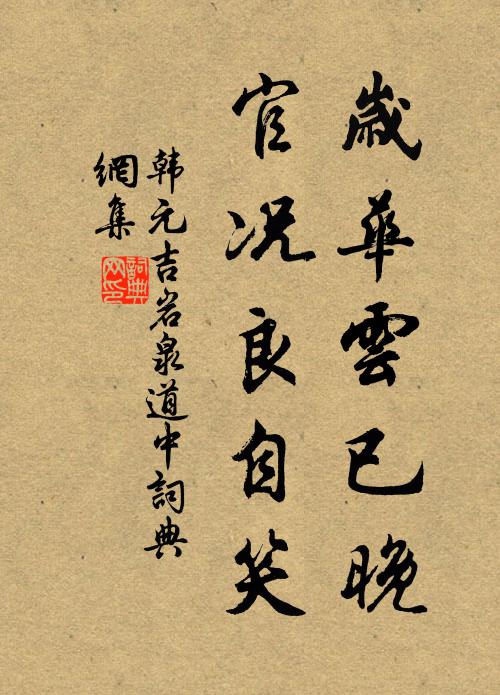 歲華雲已晚
官况良自笑
韩元吉岩泉道中詞典
網集
詞典
网印